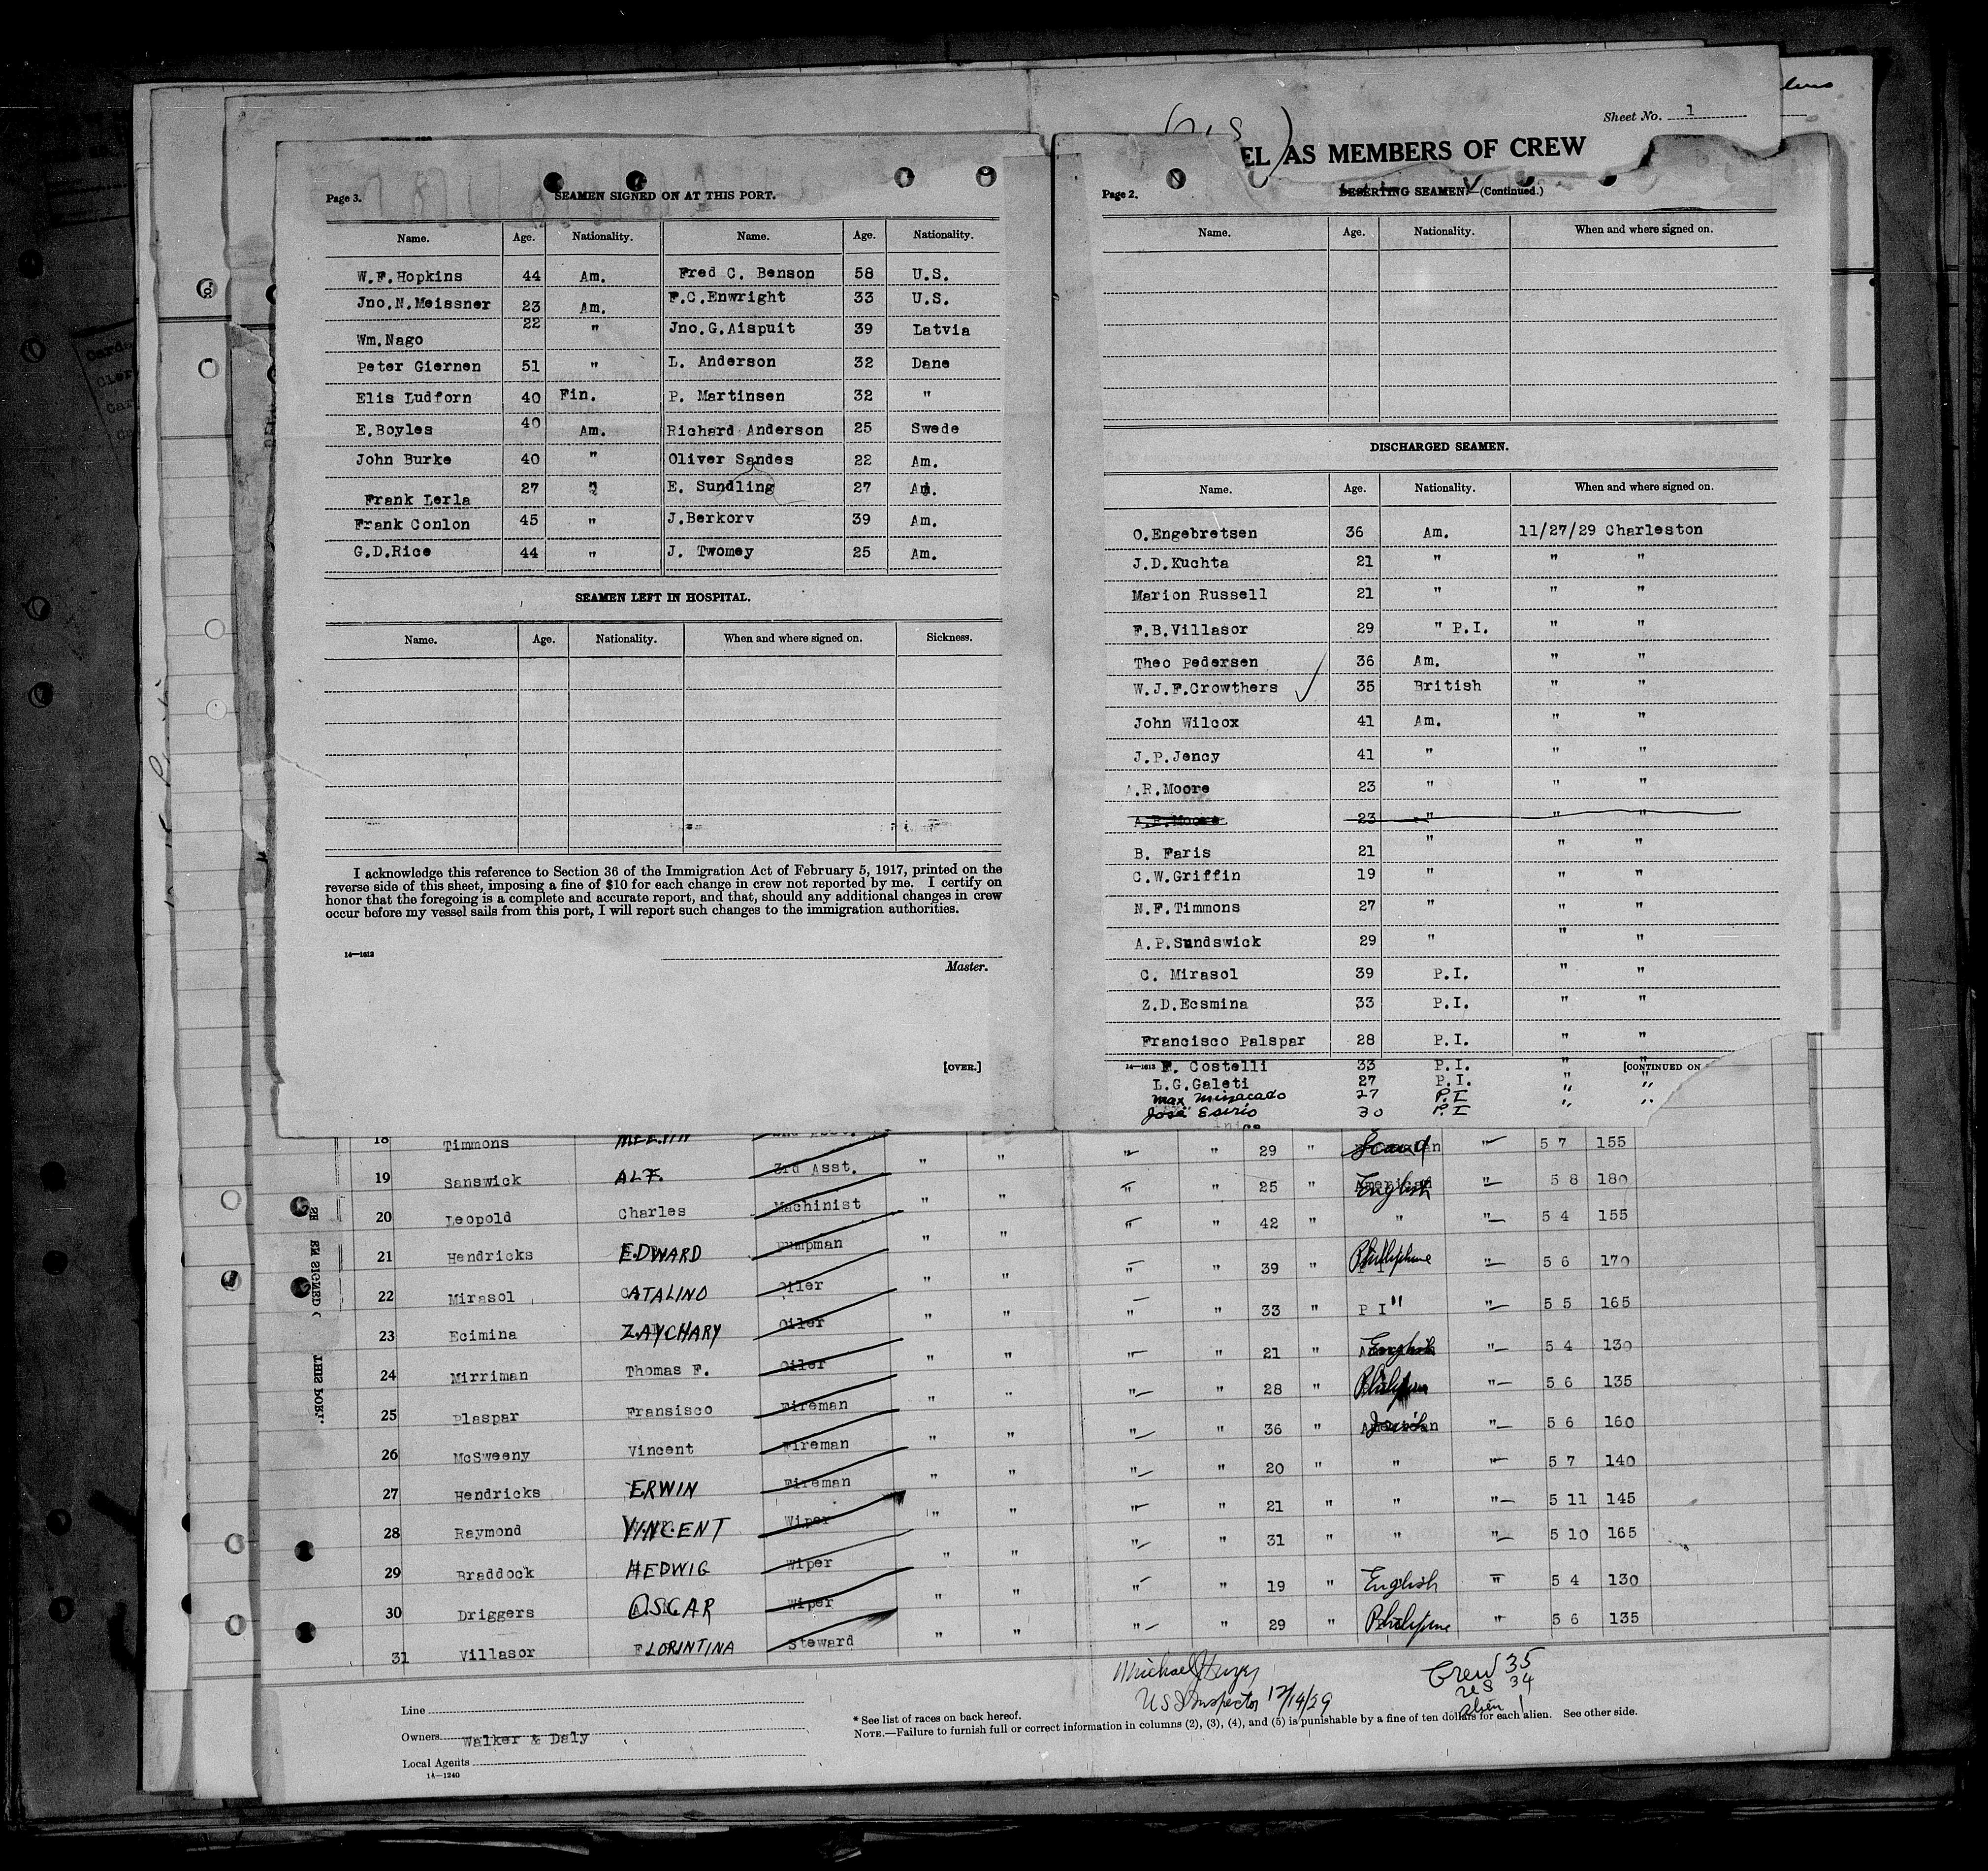 Sheet No. 1
AS MEMBERS OF CREW
Page 3.
SEAMEN SIGNED ON AT THIS PORT.
Name. Age. Nationality. Name. Age. Nationality.
W.F.Hopkins 44 Am. Fred C. Benson 58 U.S.
Jno.N.Meissner 23 Am. F.C.Enwright 33 U.S.
Wm.Nago 22 " Jno.G.Aispuit 39 Latvia
Peter Giernen 51 " L. Anderson 32 Dane
Elis Ludforn 40 Fin. P. Martinsen 32 "
E.Boyles 40 Am. Richard Anderson 25 Swede
John Burke 40 " Oliver Sandes 22 Am.
Frank Lerla 27 " E. Sundling 27 Am.
Frank Conlon 45 " J.Berkorv 39 Am.
G.D.Rice 44 " J. Twomey 25 Am.
SEAMEN LEFT IN HOSPITAL.
Name. Age. Nationality. When and where signed on. Sickness.
I acknowledge this reference to Section 36 of the Immigration Act of February 5, 1917, printed on the
reverse side of this sheet, imposing a fine of $10 for each change in crew not reported by me. I certify on
honor that the foregoing is a complete and accurate report, and that, should any additional changes in crew
occur before my vessel sails from this port, I will report such changes to the immigration authorities.
14—1613
Master.
[OVER.]
Page 2.
DESERTING SEAMEN—(Continued.)
Name. Age. Nationality. When and where signed on.
DISCHARGED SEAMEN.
Name. Age. Nationality. When and where signed on.
O.Engebretsen 36 Am. 11/27/29 Charleston
J.D.Kuchta 21 " " "
Marion Russell 21 " " "
F.B.Villasor 29 " P.I. " "
Theo Pedersen 36 Am. " "
W.J.F.Crowthers 35 British " "
John Wilcox 41 Am. " "
J.P.Jency 41 " " "
A.R.Moore 23 " " "
A.R.Moore 23 " " "
B. Faris 21 " " "
C.W.Griffin 19 " " "
N.F.Timmons 27 " " "
A.P.Sundswick 29 " " "
C. Mirasol 39 P.I. " "
Z.D.Ecsmina 33 P.I. " "
Francisco Palspar 28 P.I. " "
14—1613 F. Costelli 33 P.I. " " [CONTINUED ON
L.G.Galeti 27 P.I. " "
Max 27 P.I " "
José 30 P.I " "
18 Timmons 29 " " 5 7 155
19 Sanswick ALF. 3rd Asst. " " " " 25 " English " 5 8 180
20 Leopold Charles Machinist " " " " 42 " " " 5 4 155
21 Hendricks EDWARD Pumpman " " " " 39 " Philliphine " 5 6 170
22 Mirasol CATALINO Oiler " " " " 33 " P I " " 5 5 165
23 Ecimina ZAYCHARY Oiler " " " " 21 " English " 5 4 130
24 Mirriman Thomas F. Oiler " " " " 28 " " 5 6 135
25 Plaspar Fransisco Fireman " " " " 36 " " 5 6 160
26 McSweeny Vincent Fireman " " " " 20 " " " 5 7 140
27 Hendricks ERWIN Fireman " " " " 21 " " " 5 11 145
28 Raymond VINCENT Wiper " " " " 31 " " " 5 10 165
29 Braddock HEDWIG Wiper " " " " 19 " English " 5 4 130
30 Driggers OSCAR Wiper " " " " 29 " Philipine " 5 6 135
31 Villasor FLORINTINA Steward " "
THIS PORT.
Michael
US Inspector 12/14/29
Crew 35
US 34
alien 1
Line
Owners Walker & Daly
Local Agents
14—1240
* See list of races on back hereof.
NOTE.—Failure to furnish full or correct information in columns (2), (3), (4), and (5) is punishable by a fine of ten dollars for each alien. See other side.